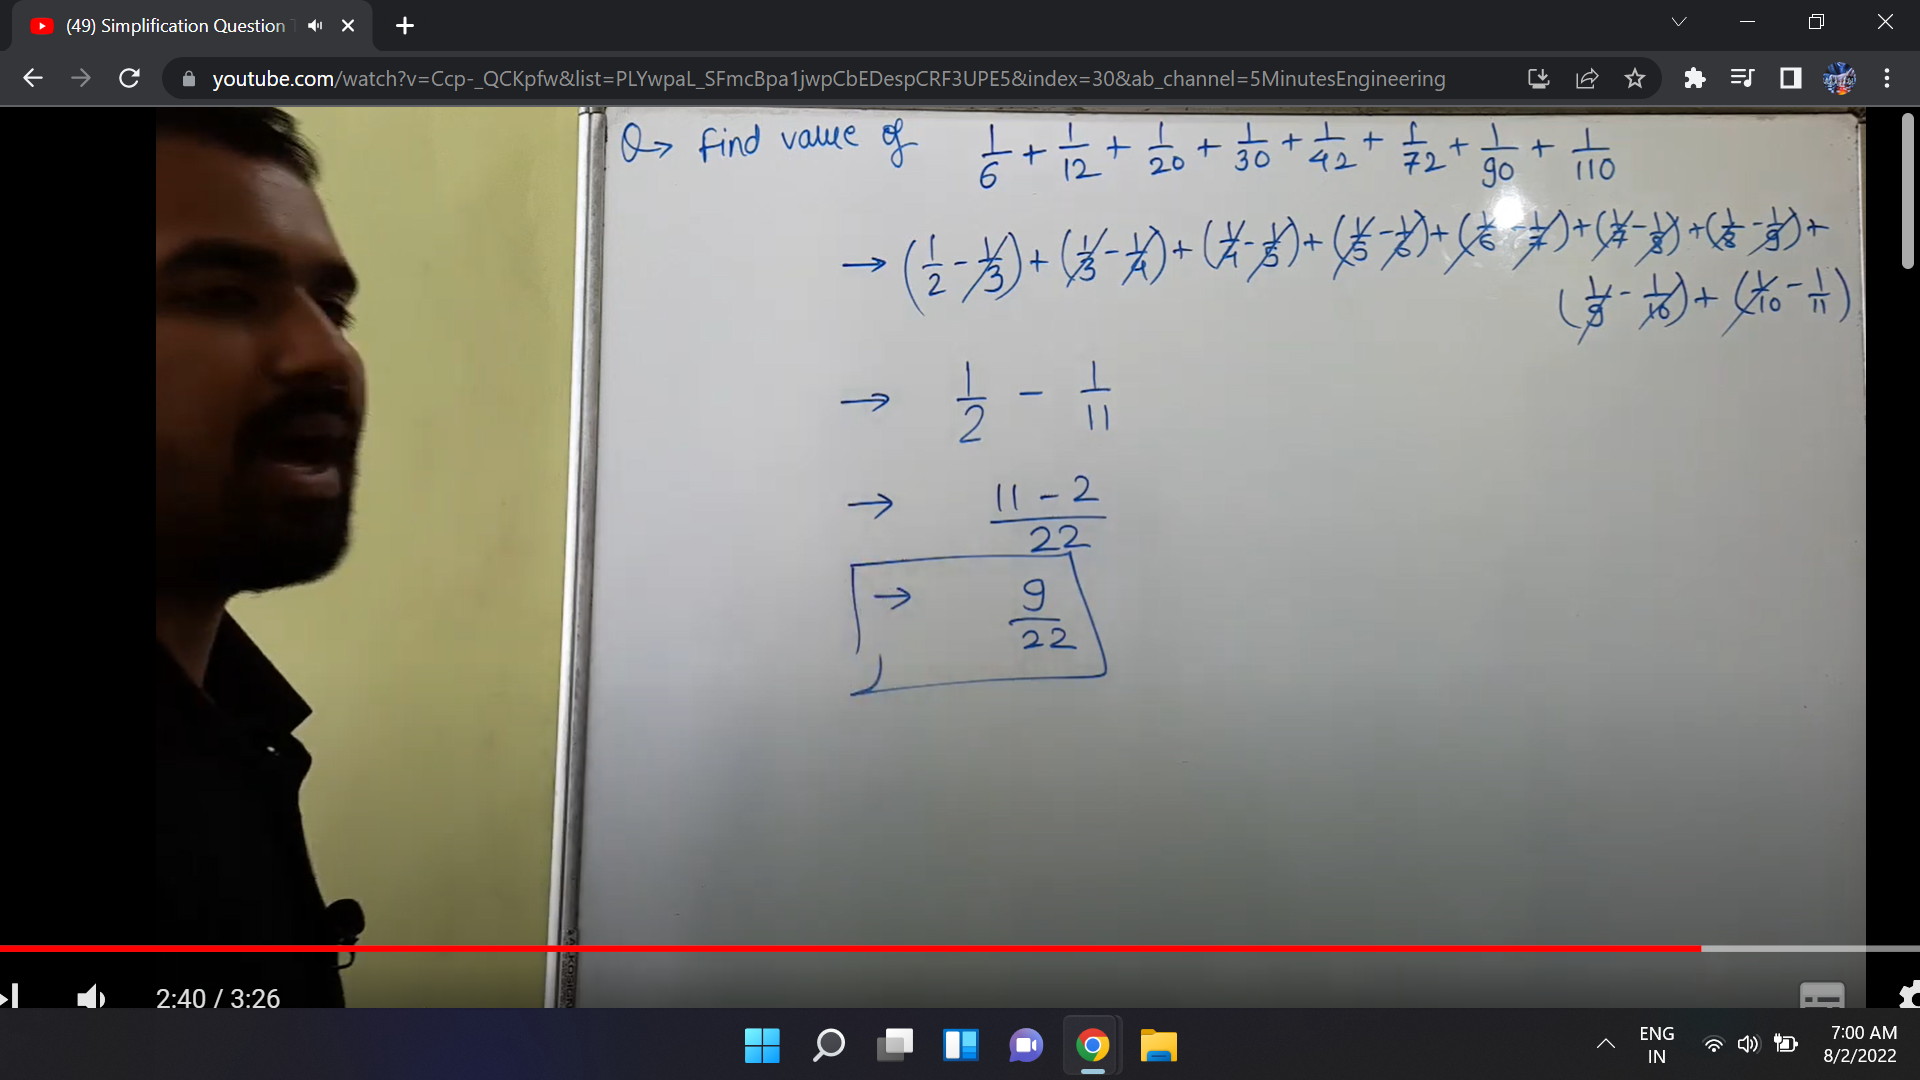 (49) Simplification Question
youtube.com/watch?v=Ccp-_QCKpfw&list=PLYwpaL_SFmcBpa1jwpCbEDespCRF3UPE5&index=30&ab_channel=5MinutesEngineering
Q→ Find value of 1/6 + 1/12 + 1/20 + 1/30 + 1/42 + 1/72 + 1/90 + 1/110
→ (1/2 - 1/3) + (1/3 - 1/4) + (1/4 - 1/5) + (1/5 - 1/6) + (1/6 - 1/7) + (1/7 - 1/8) + (1/8 - 1/9) +
(1/9 - 1/10) + (1/10 - 1/11)
→ 1/2 - 1/11
→ 11 - 2/22
→ 9/22
2:40 / 3:26
ENG
IN
7:00 AM
8/2/2022